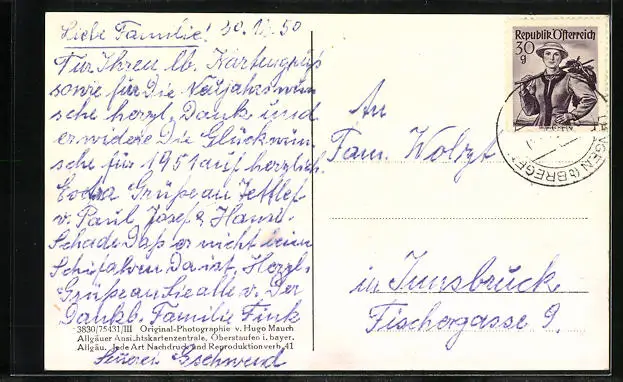 Liebe Familie! 30.12.50
Für Ihren lb. Kartengruß
sowie für Die Neujahrswün
sche herzl. Dank und
erwidere Die Glückwün
sche für 1951 auf herzlich.
Extra Grüße an Detlef
v. Paul Josef & Hansi.
Schade Daß er nicht beim
Schifahren Da ist. Herzl.
Grüße an Sie alle v. Der
Dankb. Familie Fink
3830/75431/III Original-Photographie v. Hugo Mauch
Allgäuer Ansichtskartenzentrale, Oberstaufen i. bayer.
Allgäu. Jede Art Nachdruck und Reproduktion verb. 41
Gschwend
Republik Österreich
30
g
LANGEN (b BREGENZ
An
Fam.
in Innsbruck
Fischergasse 9.